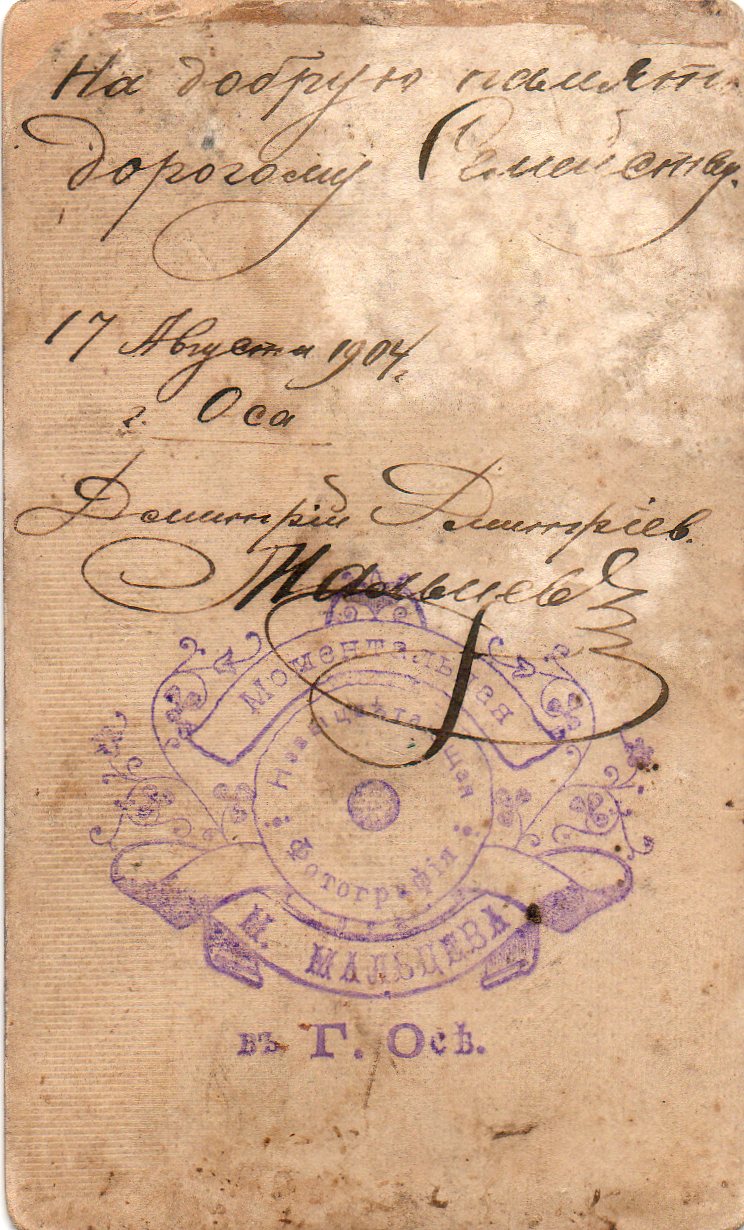 На добрую память
дорогому Семейству.
17 Августа 1904 г.
г. Оса
Дмитрій Дмитріев.
Мальцев
Моментальная
Новоцвѣтающая
Фотографія
И. МАЛЬЦЕВА
въ Г. Осѣ.